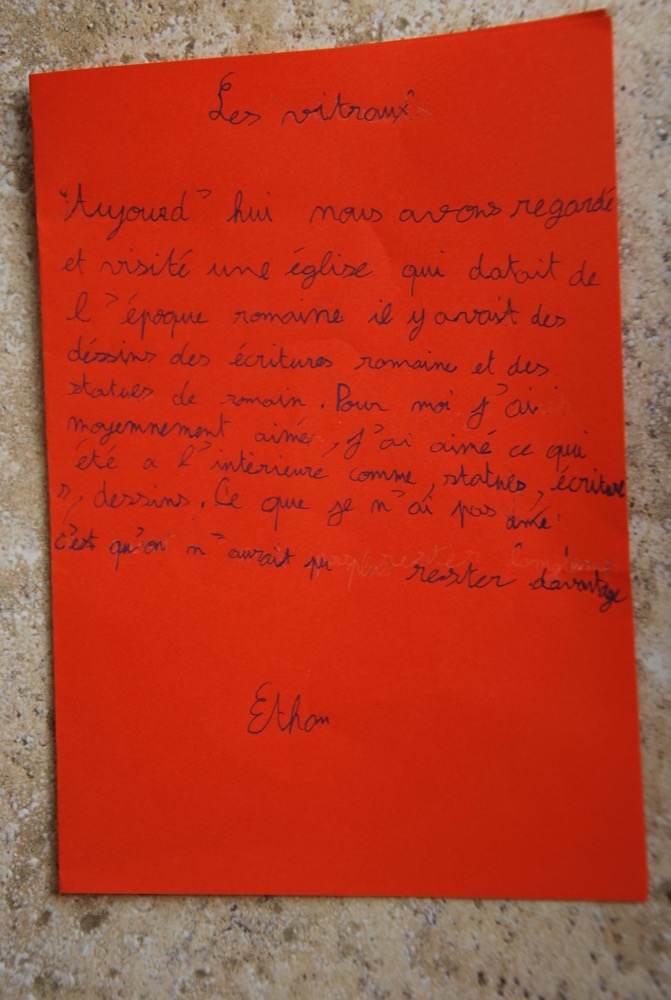 Les vitraux
"Aujourd'hui nous avons regardé
et visité une église qui datait de
l'époque romaine il y avait des
déssins des écritures romaine et des
statues de romain. Pour moi j'ai
moyemnement aimé, j'ai aimé ce qui
été a l'intérieure comme, statues, écriture
s, dessins. Ce que je n'ai pas aimé
c'est qu'on n'aurait pu rester davantage
Ethan